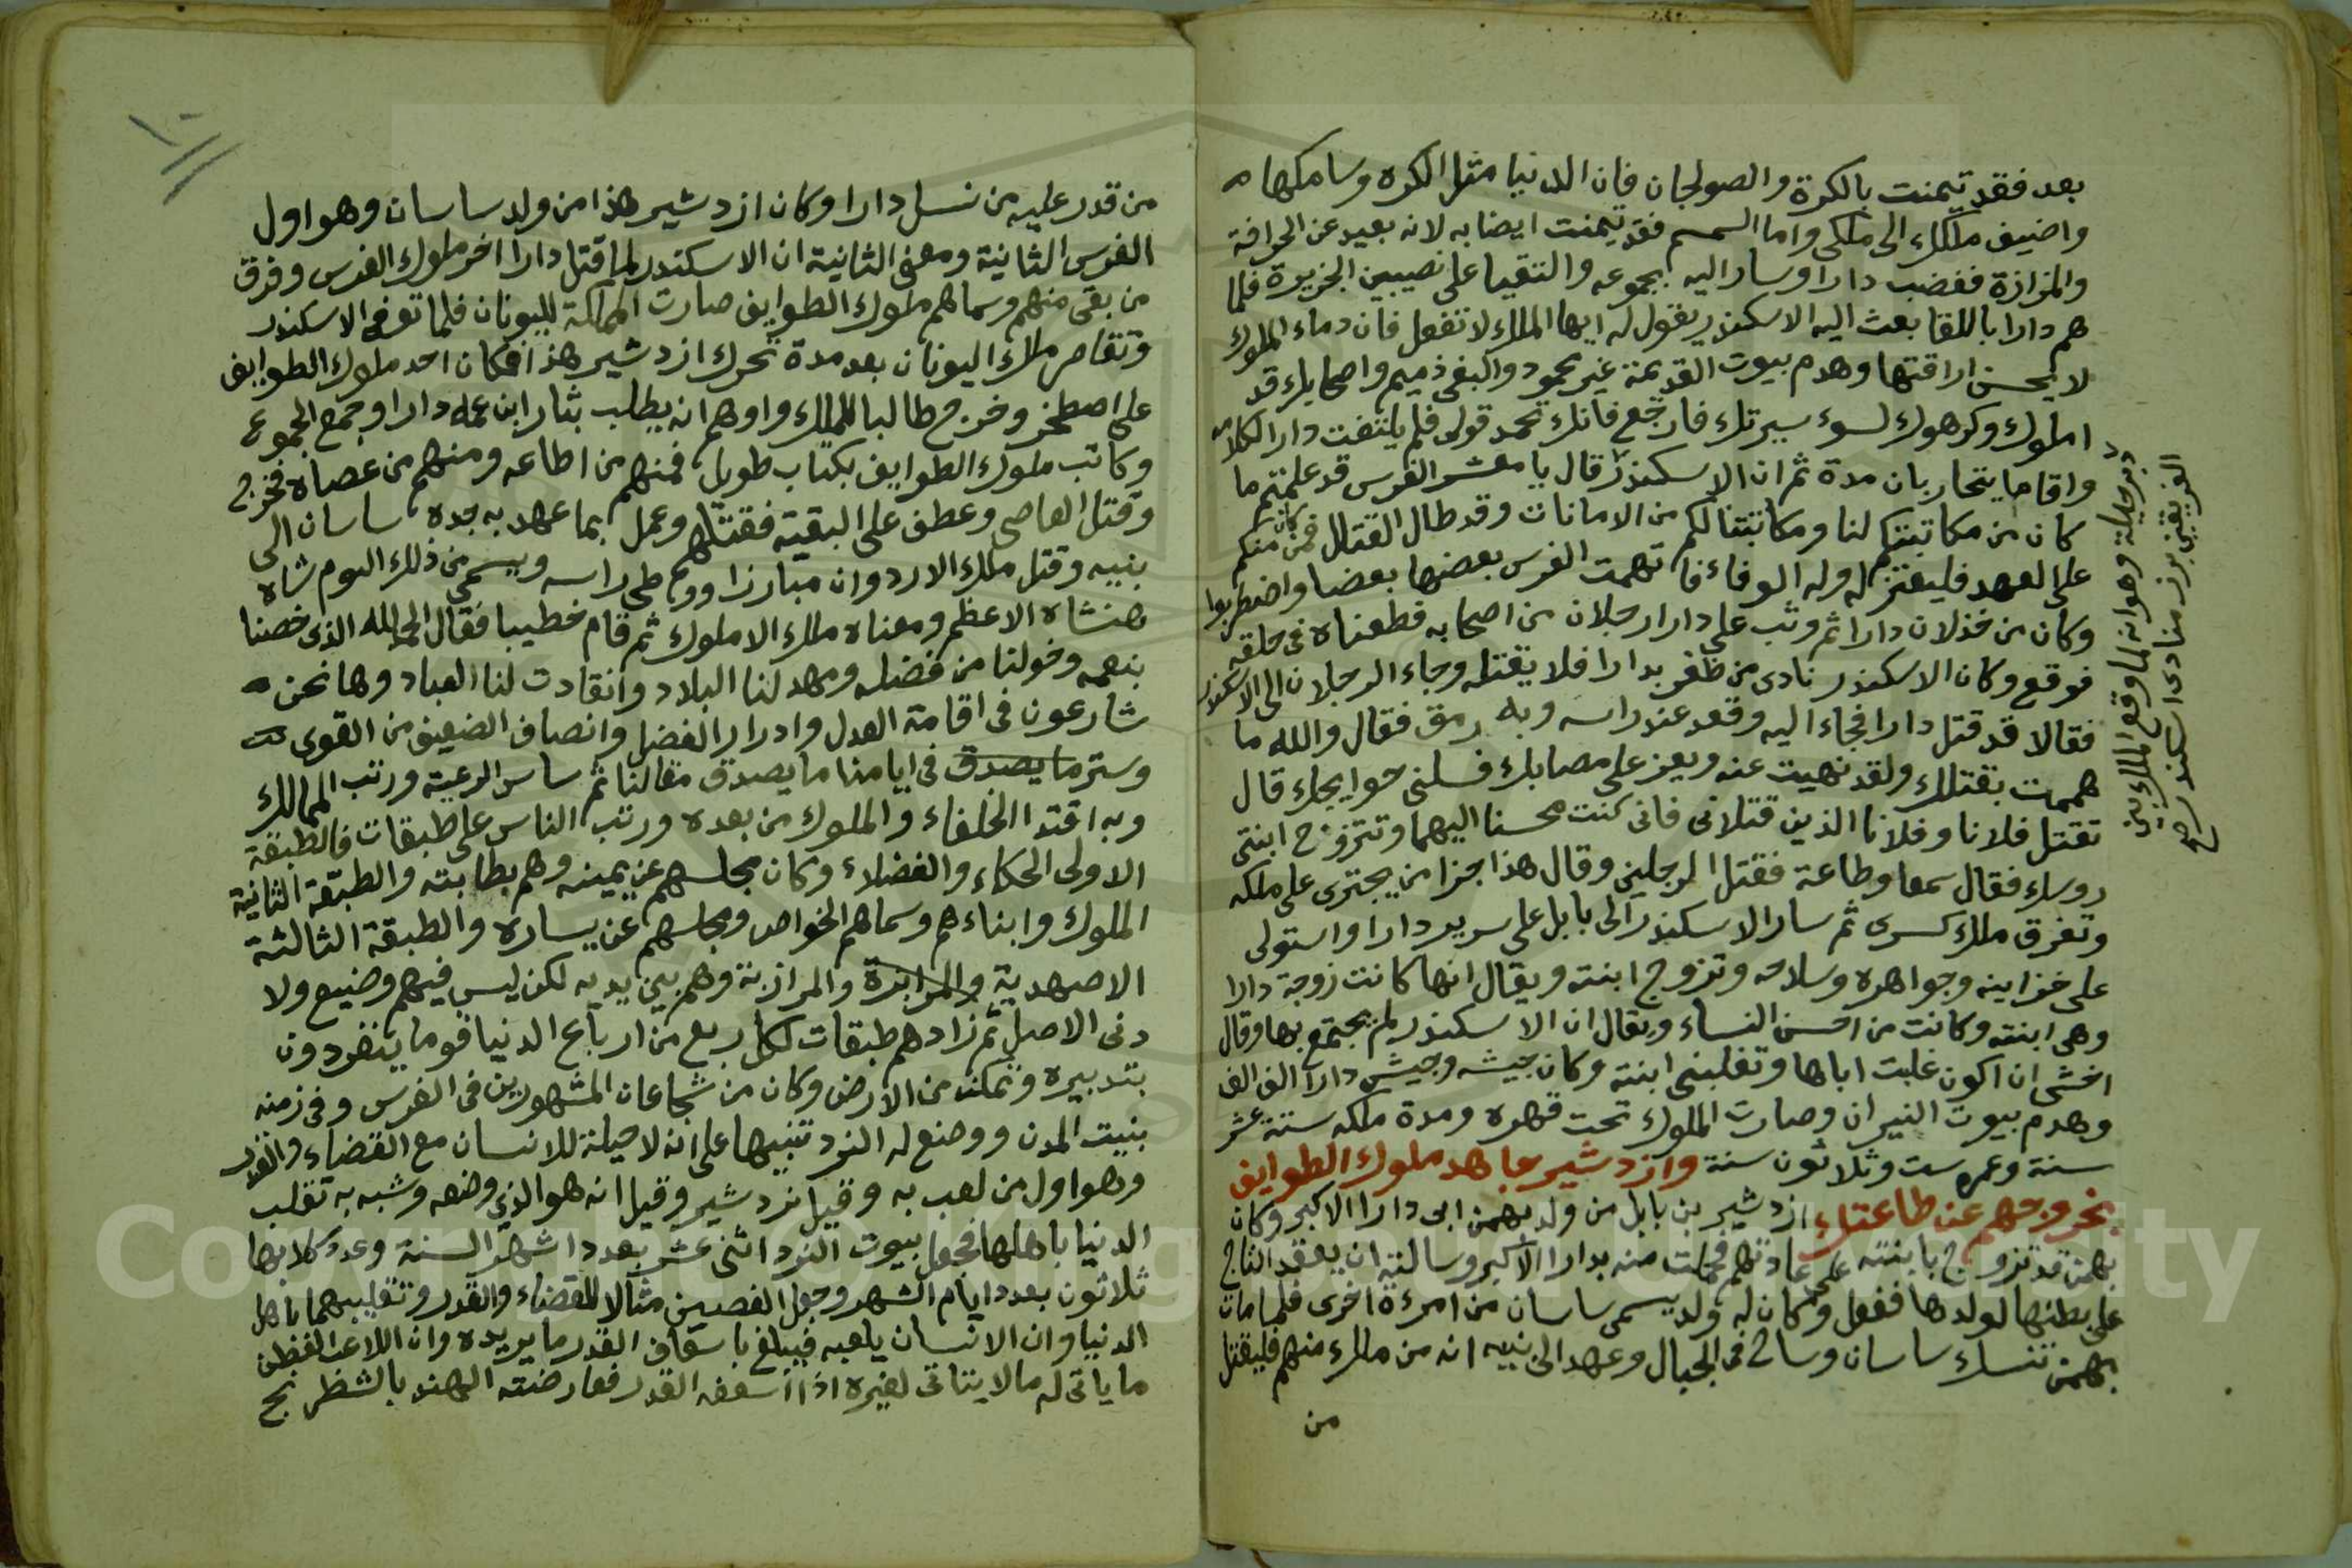 بعد فقد تيمنت بالكرة والصولجان فان الدنيا مثل الكره وسامكها
واضيف ملكك الى ملكى واما السمسم فقد تيمنت ايضا به لانه بعيد عن الحرافة
والمزازة فغضب دارا وسار اليه بجموعه والتقيا على نصيبين الجزيرة فلما
هم دارا باللقا بعث اليه الاسكندر يقول له ايها الملك لا تفعل فان دماء الملوك
لا يحسن اراقتها وهدم بيوت القديمة غير محمود والبغى ذميم واصحابك قد
املوك وكرهوك لسوء سيرتك فارجع فانك تحمد قولى فلم يلتفت دارا لكلامه
واقاما يتحاربان مدة ثم ان الاسكندر قال يا معشر الفرس قد علمتم ما
كان من مكاتبتكم لنا ومكاتبتنا لكم من الامانات وقد طال القتال فمن كان منكم
على العهد فليعتزل وله الوفاء فاتهمت الفرس بعضها بعضا واضطربوا
وكان من خذلان دارا ثم وثب على دارا رجلان من اصحابه فطعناه فى حلقه
فوقع وكان الاسكندر نادى من ظفر بدارا فلا يقتله وجاء الرجلان الى الاسكندر
فقالا قد قتل دارا فجاء اليه وقعد عند راسه وبه رمق فقال والله ما
هممت بقتلك ولقد نهيت عنه ويعز على مصابك فسلنى حوايجك قال
تقتل فلانا وفلانا الذين قتلانى فانى كنت محسنا اليهما وتتزوج ابنتى
روسك فقال سمعا وطاعة فقتل الرجلين وقال هذا جزا من يجترى على ملكه
وتفرق ملك كسرى ثم سار الاسكندر الى بابل على سرير دارا واستولى
على خزاينه وجواهره وسلاحه وتزوج ابنته ويقال انها كانت زوجة دارا
وهى ابنته وكانت من احسن النساء ويقال ان الاسكندر لم يجتمع بها وقال
اخشى ان اكون غلبت اباها وتغلبنى ابنته وكان جيشه وجيش دارا الف الف
وهدم بيوت النيران وصارت الملوك تحت قهره ومدة ملكه ستة عشر
سنة وعمره ست وثلاثون سنة وازدشير جاهد ملوك الطوايف
بخروجهم عن طاعتك ازدشير بن بابل من ولد بهمن ابى دارا الاكبر وكان
بهمن قد تزوج بابنته على عادتهم فحملت منه بدارا الاكبر وسالته ان يعقد التاج
على بطنها لولدها ففعل وكان له ولد يسمى ساسان من امرءة اخرى فلما مات
بهمن تنسك ساسان وساح فى الجبال وعهد الى بنيه انه من ملك منهم فليقتل
من
دبر حيلة وهو انه لما وقع الملك بين
الفريقين برز منادى اسكندر صح
من قدر عليه من نسل دارا وكان ازدشير هذا من ولد ساسان وهو اول
الفرس الثانية ومعنى الثانية ان الاسكندر لما قتل دارا اخر ملوك الفرس وفرق
من بقى منهم وسماهم ملوك الطوايف صارت المملكة لليونان فلما توفى الاسكندر
وتقاصر ملك اليونان بعد مدة تحرك ازدشير هذا فكان احد ملوك الطوايف
على اصطخر وخرج طالبا للملك واوهم انه يطلب بثار ابن عمه دارا وجمع الجموع
وكاتب ملوك الطوايف بكتاب طويل فمنهم من اطاعه ومنهم من عصاه فخرج
وقتل العاصى وعطف على البقية فقتلهم وعمل بما عهد به جده ساسان الى
بنيه وقتل ملك الاردوان مبارزا ووطى راسه ويسمى من ذلك اليوم شاه
هنشاه الاعظم ومعناه ملك الاملوك ثم قام خطيبا فقال الحمد لله الذى خصنا
بنعمه وخولنا من فضله ومهد لنا البلاد وانقادت لنا العباد وها نحن
شارعون فى اقامة العدل وادرار الفضل وانصاف الضعيف من القوى
وسترما يصدق فى ايامنا ما يصدق مقالنا ثم ساس الرعية ورتب الممالك
وبه اقتدا الخلفاء والملوك من بعده ورتب الناس على طبقات فالطبقة
الاولى الحكاء والفضلاء وكان مجلسهم عن يمينه وهم بطانته والطبقة الثانية
الملوك وابناءهم وسماهم الخواص ومجلسهم عن يساره والطبقة الثالثة
الاصهدية والمرابزة والمرازبة وهم بين يديه لكن ليس فيهم وضيع ولا
دنى الاصل ثم زادهم طبقات لكل ربع من ارباع الدنيا قوما ينفردون
بتدبيره وتمكن من الارض وكان من شجاعان المشهورين فى الفرس وفى زمنه
بنيت المدن ووضع له النرد تنبيها على انه لا حيلة للانسان مع القضاء والقدر
وهو اول من لعب به وقيل نردشير وقيل انه هو الذى وضعه وشبه به تقلب
الدنيا باهلها فجعل بيوت النرد اثنى عشر بعدد اشهر السنة وعدد كلابها
ثلاثون بعدد ايام الشهر وجعل الفصين مثالا للقضاء والقدر وتقليبهما باهل
الدنيا وان الانسان يلعبه فيبلغ باسعاف القدر ما يريده وان اللاعب الفطن
ما ياتى له مالا يتاتى لغيره اذا اسعفه القدر فعارضته الهند بالشطرنج